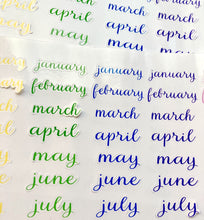 april april april april
may may may may
january january january
february february february
march march march
april april april
may may may
june june june
july july july